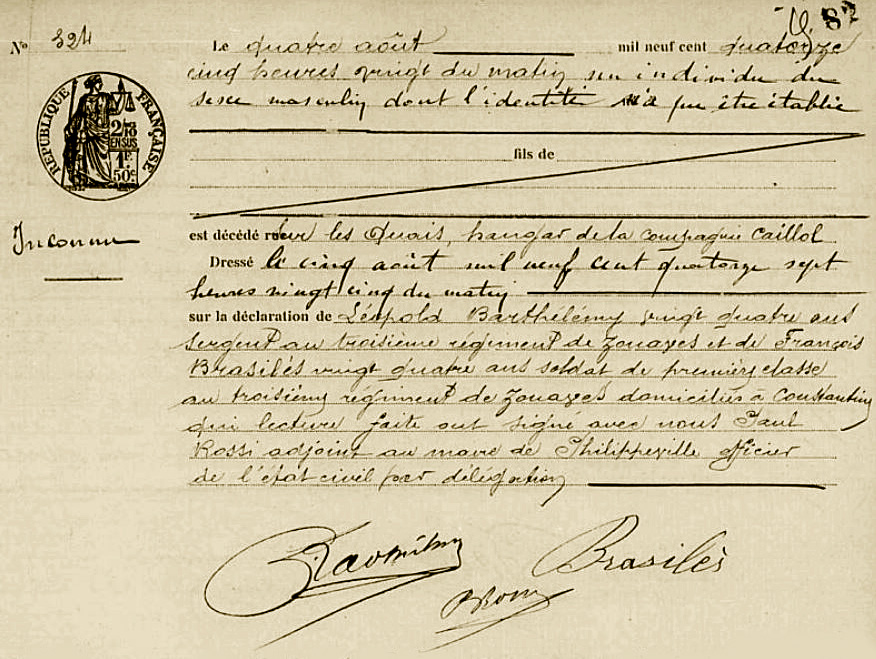 82
N° 324
Le quatre août mil neuf cent quatorze
cinq heures vingt du matin un individu du
sexe masculin dont l'identité n'a pu être établie
RÉPUBLIQUE FRANÇAISE
2/10
EN SUS
1F.
50c.
fils de
Inconnu
est décédé sur les Quais, hangar de la compagnie Caillol
Dressé le cinq août mil neuf cent quatorze sept
heures vingt cinq du matin
sur la déclaration de Léopold Barthélémy vingt quatre ans
sergent au troisième régiment de zouaves et de François
Brasilès vingt quatre ans soldat de première classe
au troisième régiment de zouaves domiciliés à Constantine
qui lecture faite ont signé avec nous Paul
Rossi adjoint au maire de Philippeville officier
de l'état civil par délégation
Brasilès